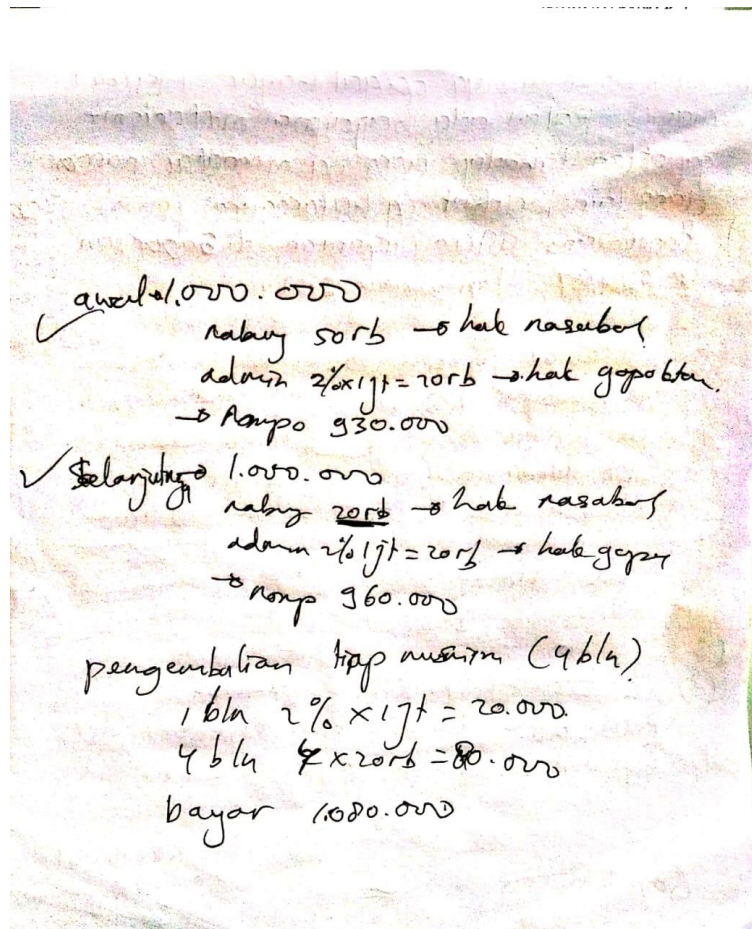 awal 1.000.000
nabung 50rb → hak nasabah
admin 2%x1jt = 20rb → hak gapoktan.
→ 930.000
Selanjutnya 1.000.000
nabung 20rb → hak nasabah
admin 2% 1jt = 20rb → hak
→ 960.000
pengembalian tiap musim (4bln)
1 bln 2% x 1jt = 20.000
4 bln 4 x 20rb = 80.000
bayar 1.080.000